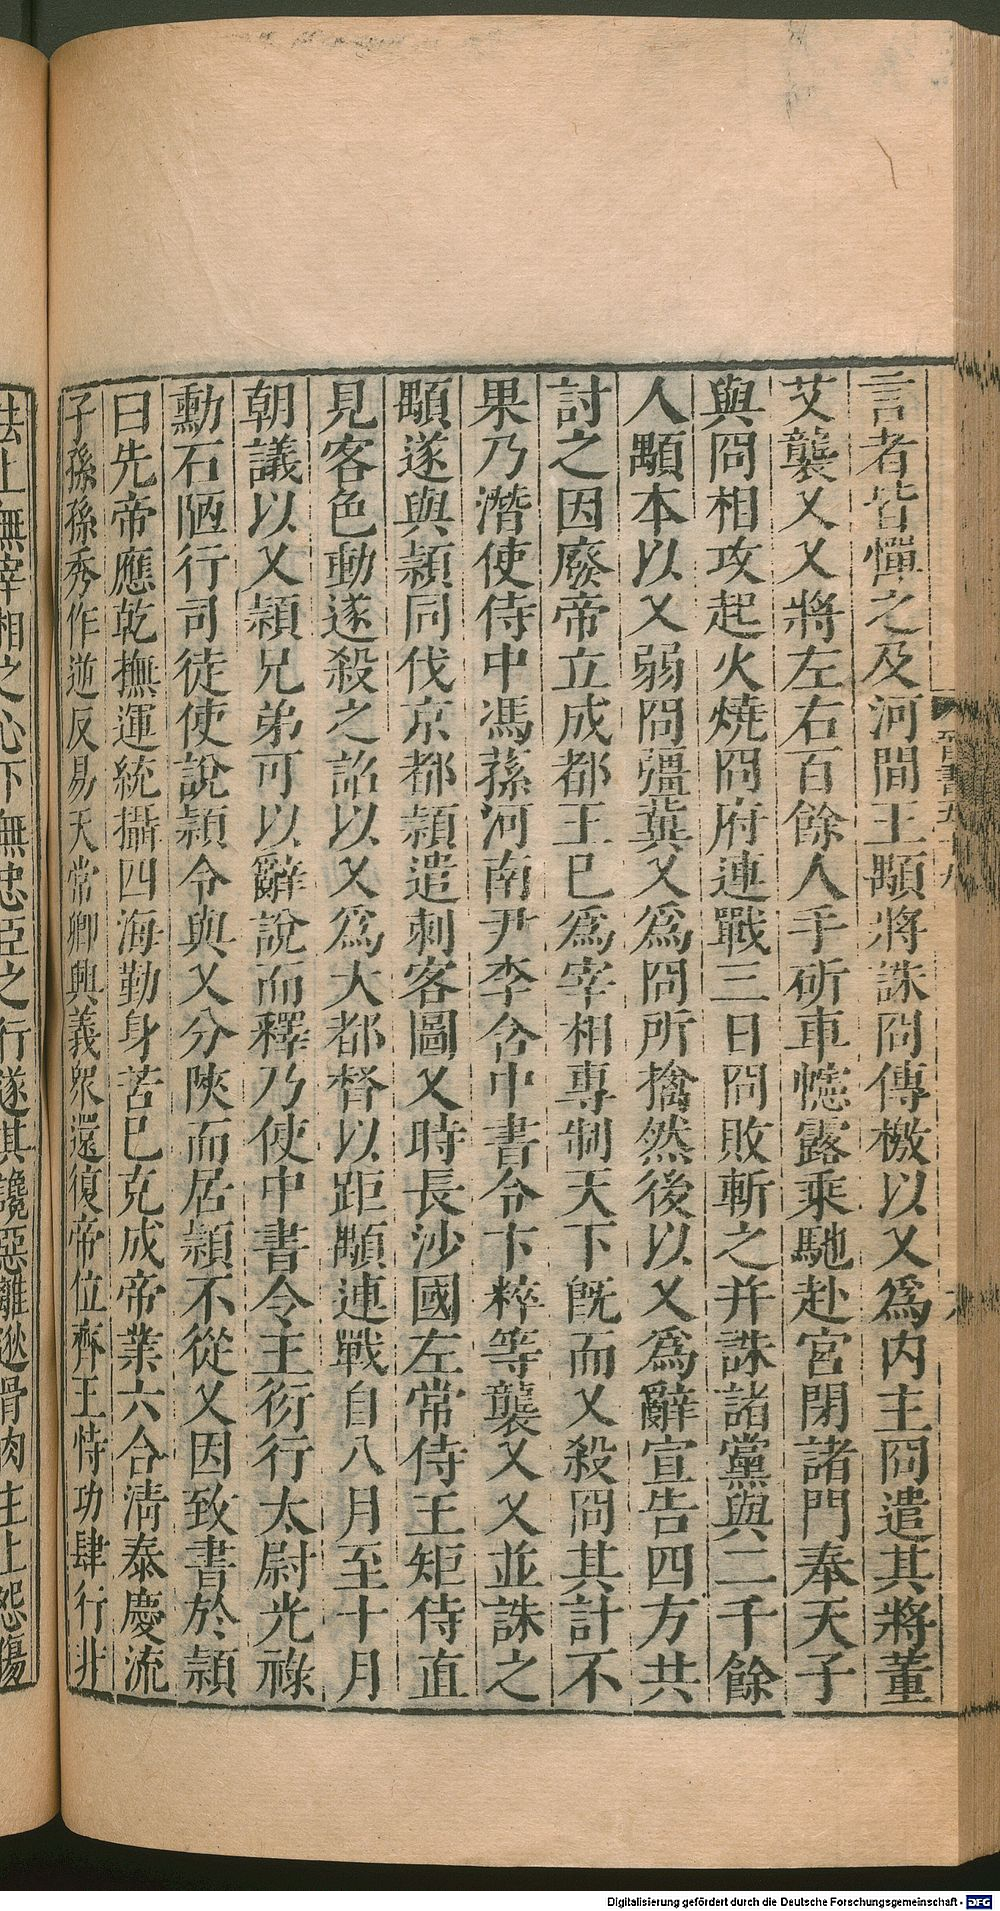 言者皆憚之及河間王顒將誅冏傳檄以乂爲內主冏遣其將董
艾襲乂乂將左右百餘人手斫車幰露乘馳赴宮閉諸門奉天子
與冏相攻起火燒冏府連戰三日冏敗斬之并誅諸黨與二千餘
人顒本以乂弱冏彊冀乂爲冏所擒然後以乂爲辭宣告四方共
討之因廢帝立成都王已爲宰相專制天下旣而乂殺冏其計不
果乃潛使侍中馮蓀河南尹李含中書令卞粹等襲乂乂並誅之
顒遂與穎同伐京都穎遣刺客圖乂時長沙國左常侍王矩侍直
見客色動遂殺之詔以乂爲大都督以距顒連戰自八月至十月
朝議以乂穎兄弟可以辭說而釋乃使中書令王衍行太尉光祿
勳石陋行司徒使說穎令與乂分陝而居穎不從乂因致書於穎
曰先帝應乾撫運統攝四海勤身苦已克成帝業六合清泰慶流
子孫孫秀作逆反易天常卿興義衆還復帝位齊王恃功肆行非
法上無宰相之心下無忠臣之行遂其讒惡離逖骨肉主上怨傷
晉書五十九
Digitalisierung gefördert durch die Deutsche Forschungsgemeinschaft - DFG